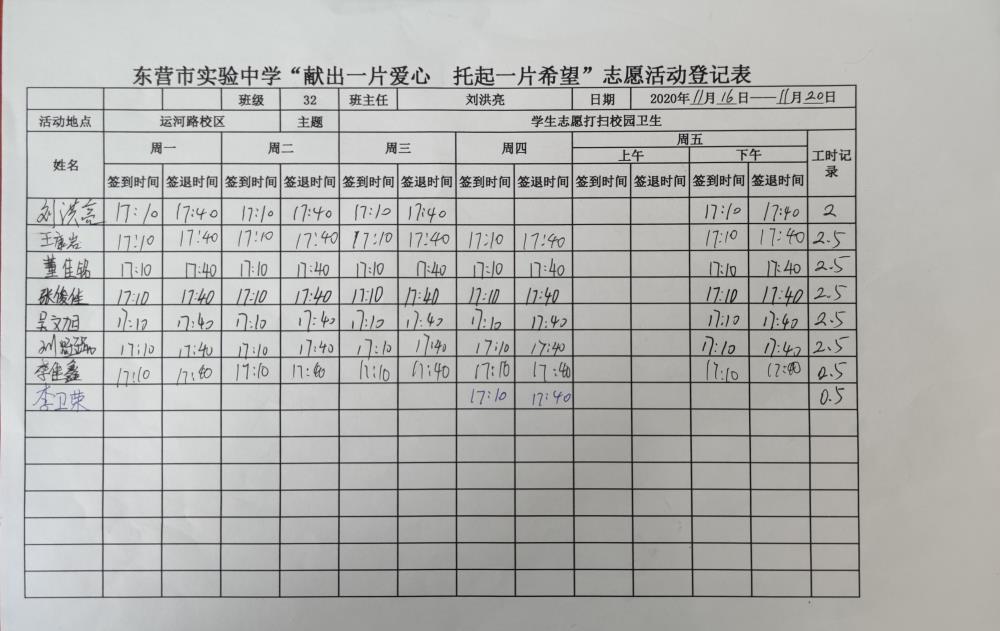 东营市实验中学“献出一片爱心 托起一片希望”志愿活动登记表
班级 32 班主任 刘洪亮 日期 2020年11月16日——11月20日
活动地点 运河路校区 主题 学生志愿打扫校园卫生
姓名 周一 周二 周三 周四 周五 工时记录
上午 下午
签到时间 签退时间 签到时间 签退时间 签到时间 签退时间 签到时间 签退时间 签到时间 签退时间 签到时间 签退时间
刘洪亮 17:10 17:40 17:10 17:40 17:10 17:40 17:10 17:40 2
王康岩 17:10 17:40 17:10 17:40 17:10 17:40 17:10 17:40 17:10 17:40 2.5
董佳铭 17:10 17:40 17:10 17:40 17:10 17:40 17:10 17:40 17:10 17:40 2.5
张俊佳 17:10 17:40 17:10 17:40 17:10 17:40 17:10 17:40 17:10 17:40 2.5
吴文旭 17:10 17:40 17:10 17:40 17:10 17:40 17:10 17:40 17:10 17:40 2.5
17:10 17:40 17:10 17:40 17:10 17:40 17:10 17:40 17:10 17:40 2.5
李佳鑫 17:10 17:40 17:10 17:40 17:10 17:40 17:10 17:40 17:10 17:40 2.5
李卫荣 17:10 17:40 0.5